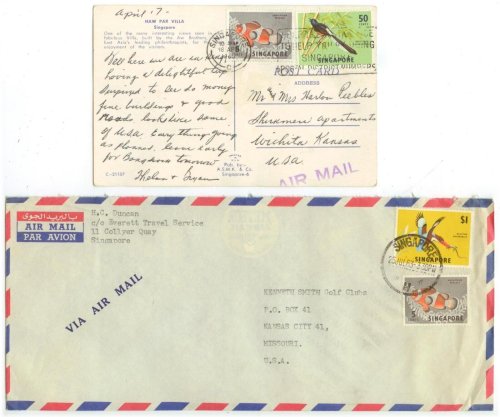 April 17-
HAW PAR VILLA
Singapore
One of the many interesting views seen in this
fabulous Villa, built by the Aw Brothers,
East Asia's leading philanthropists, for the
enjoyment of the visitors.
Well here we are in
having a delightful trip
surprised to see so many
fine buildings & good
roads looks like some
of U.S.A. Everything going
as planned. Leave early
for Bangkok tomorrow
Helen &
C-21107
Pub. by:
A.S.M.K. & Co.
Singapore-6
POST CARD
ADDRESS
Mr & Mrs Harlon Peebles
Shirkmere Apartments
Wichita Kansas
USA
AIR MAIL
SINGAPORE
SINGAPORE
50
CENTS
SINGAPORE
بالبريد الجوى
AIR MAIL
PAR AVION
H.C. Duncan
c/o Everett Travel Service
11 Collyer Quay
Singapore
VIA AIR MAIL
KENNETH SMITH Golf Clubs
P.O. BOX 41
KANSAS CITY 41,
MISSOURI.
U.S.A.
SINGAPORE
$1
SINGAPORE
5
SINGAPORE